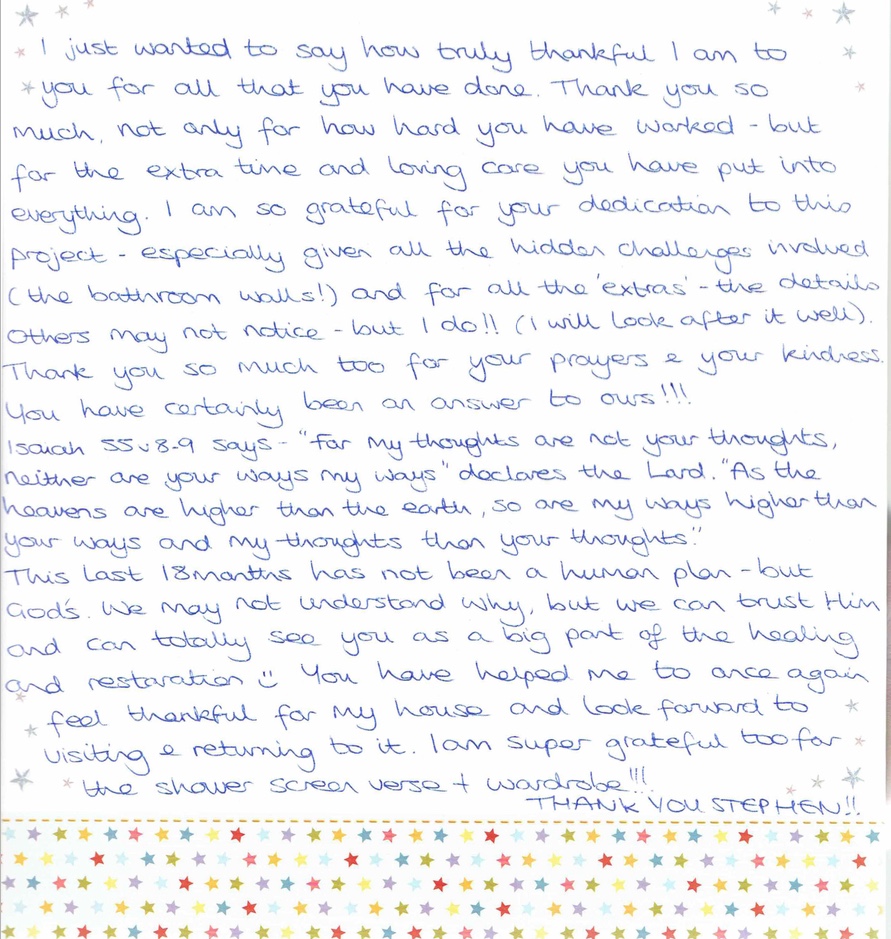 I just wanted to say how truly thankful I am to
you for all that you have done. Thank you so
much, not only for how hard you have worked - but
for the extra time and loving care you have put into
everything. I am so grateful for your dedication to this
project - especially given all the hidden challenges involved
(the bathroom walls!) and for all the 'extras' - the details
Others may not notice - but I do!! (I will look after it well).
Thank you so much too for your prayers & your kindness.
You have certainly been an answer to ours!!!
Isaiah 55v8-9 says - "For my thoughts are not your thoughts,
neither are your ways my ways" declares the Lord. "As the
heavens are higher than the earth, so are my ways higher than
your ways and my thoughts than your thoughts."
This last 18months has not been a human plan - but
God's. We may not understand why, but we can trust Him
and can totally see you as a big part of the healing
and restoration ☺ You have helped me to once again
feel thankful for my house and look forward to
visiting & returning to it. I am super grateful too for
the shower screen verse + wardrobe!!!
THANK YOU STEPHEN!!